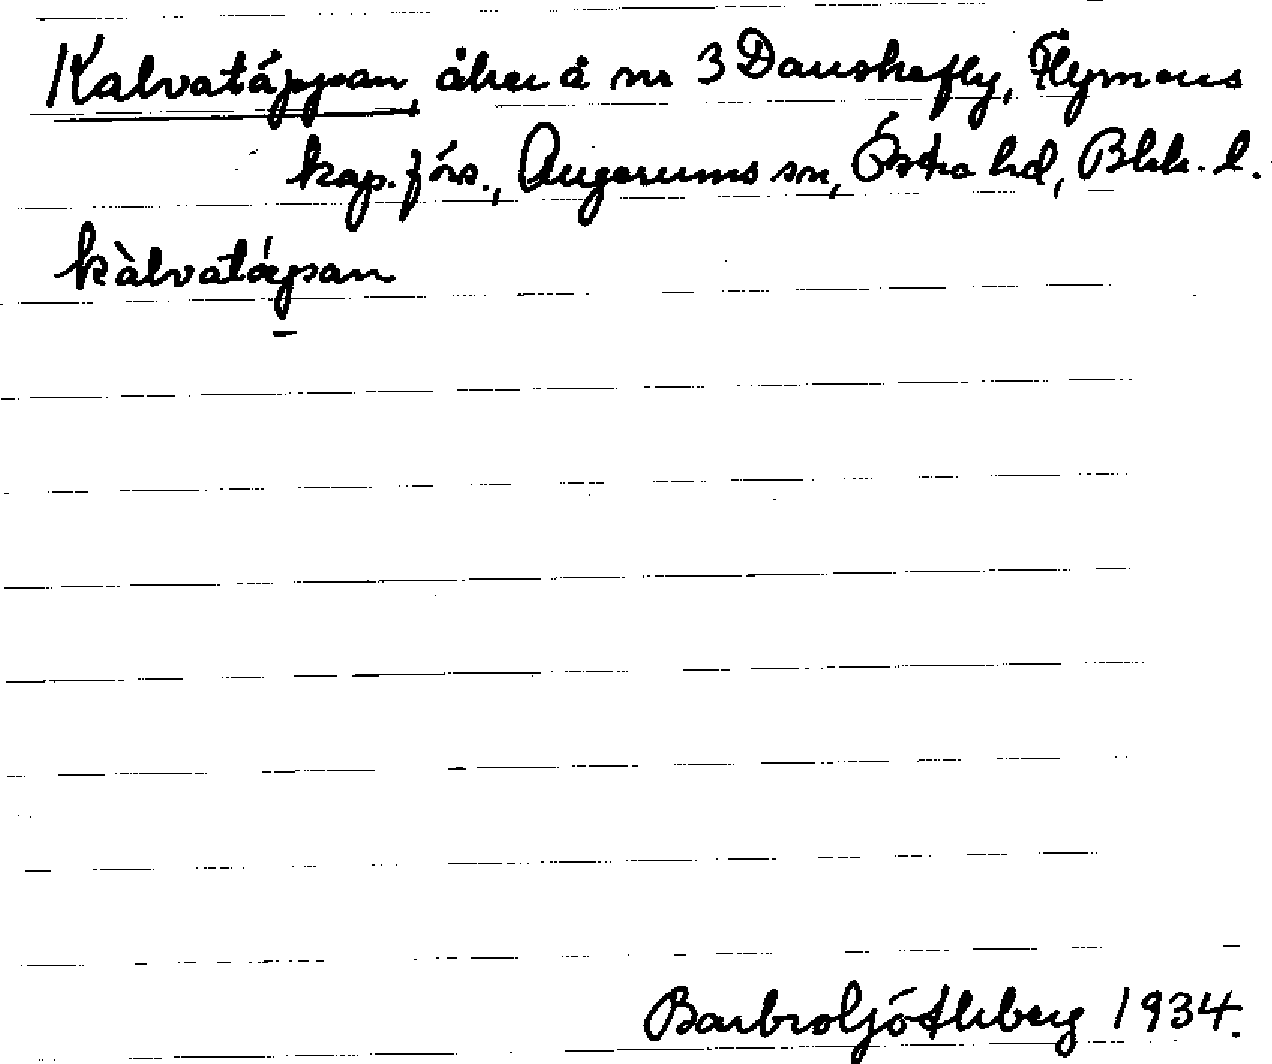 Kalvatäppan, åker å nr 3 Danskefly, Flymens
kap. förs., Augerums sn, Östra hd, Blek. l.
kàlvatápan
Barbro Götheberg 1934.